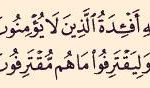 هِ أَفْـِٔدَةُ ٱلَّذِينَ لَا يُؤْمِنُونَ
وَلِيَقْتَرِفُوا۟ مَا هُم مُّقْتَرِفُونَ